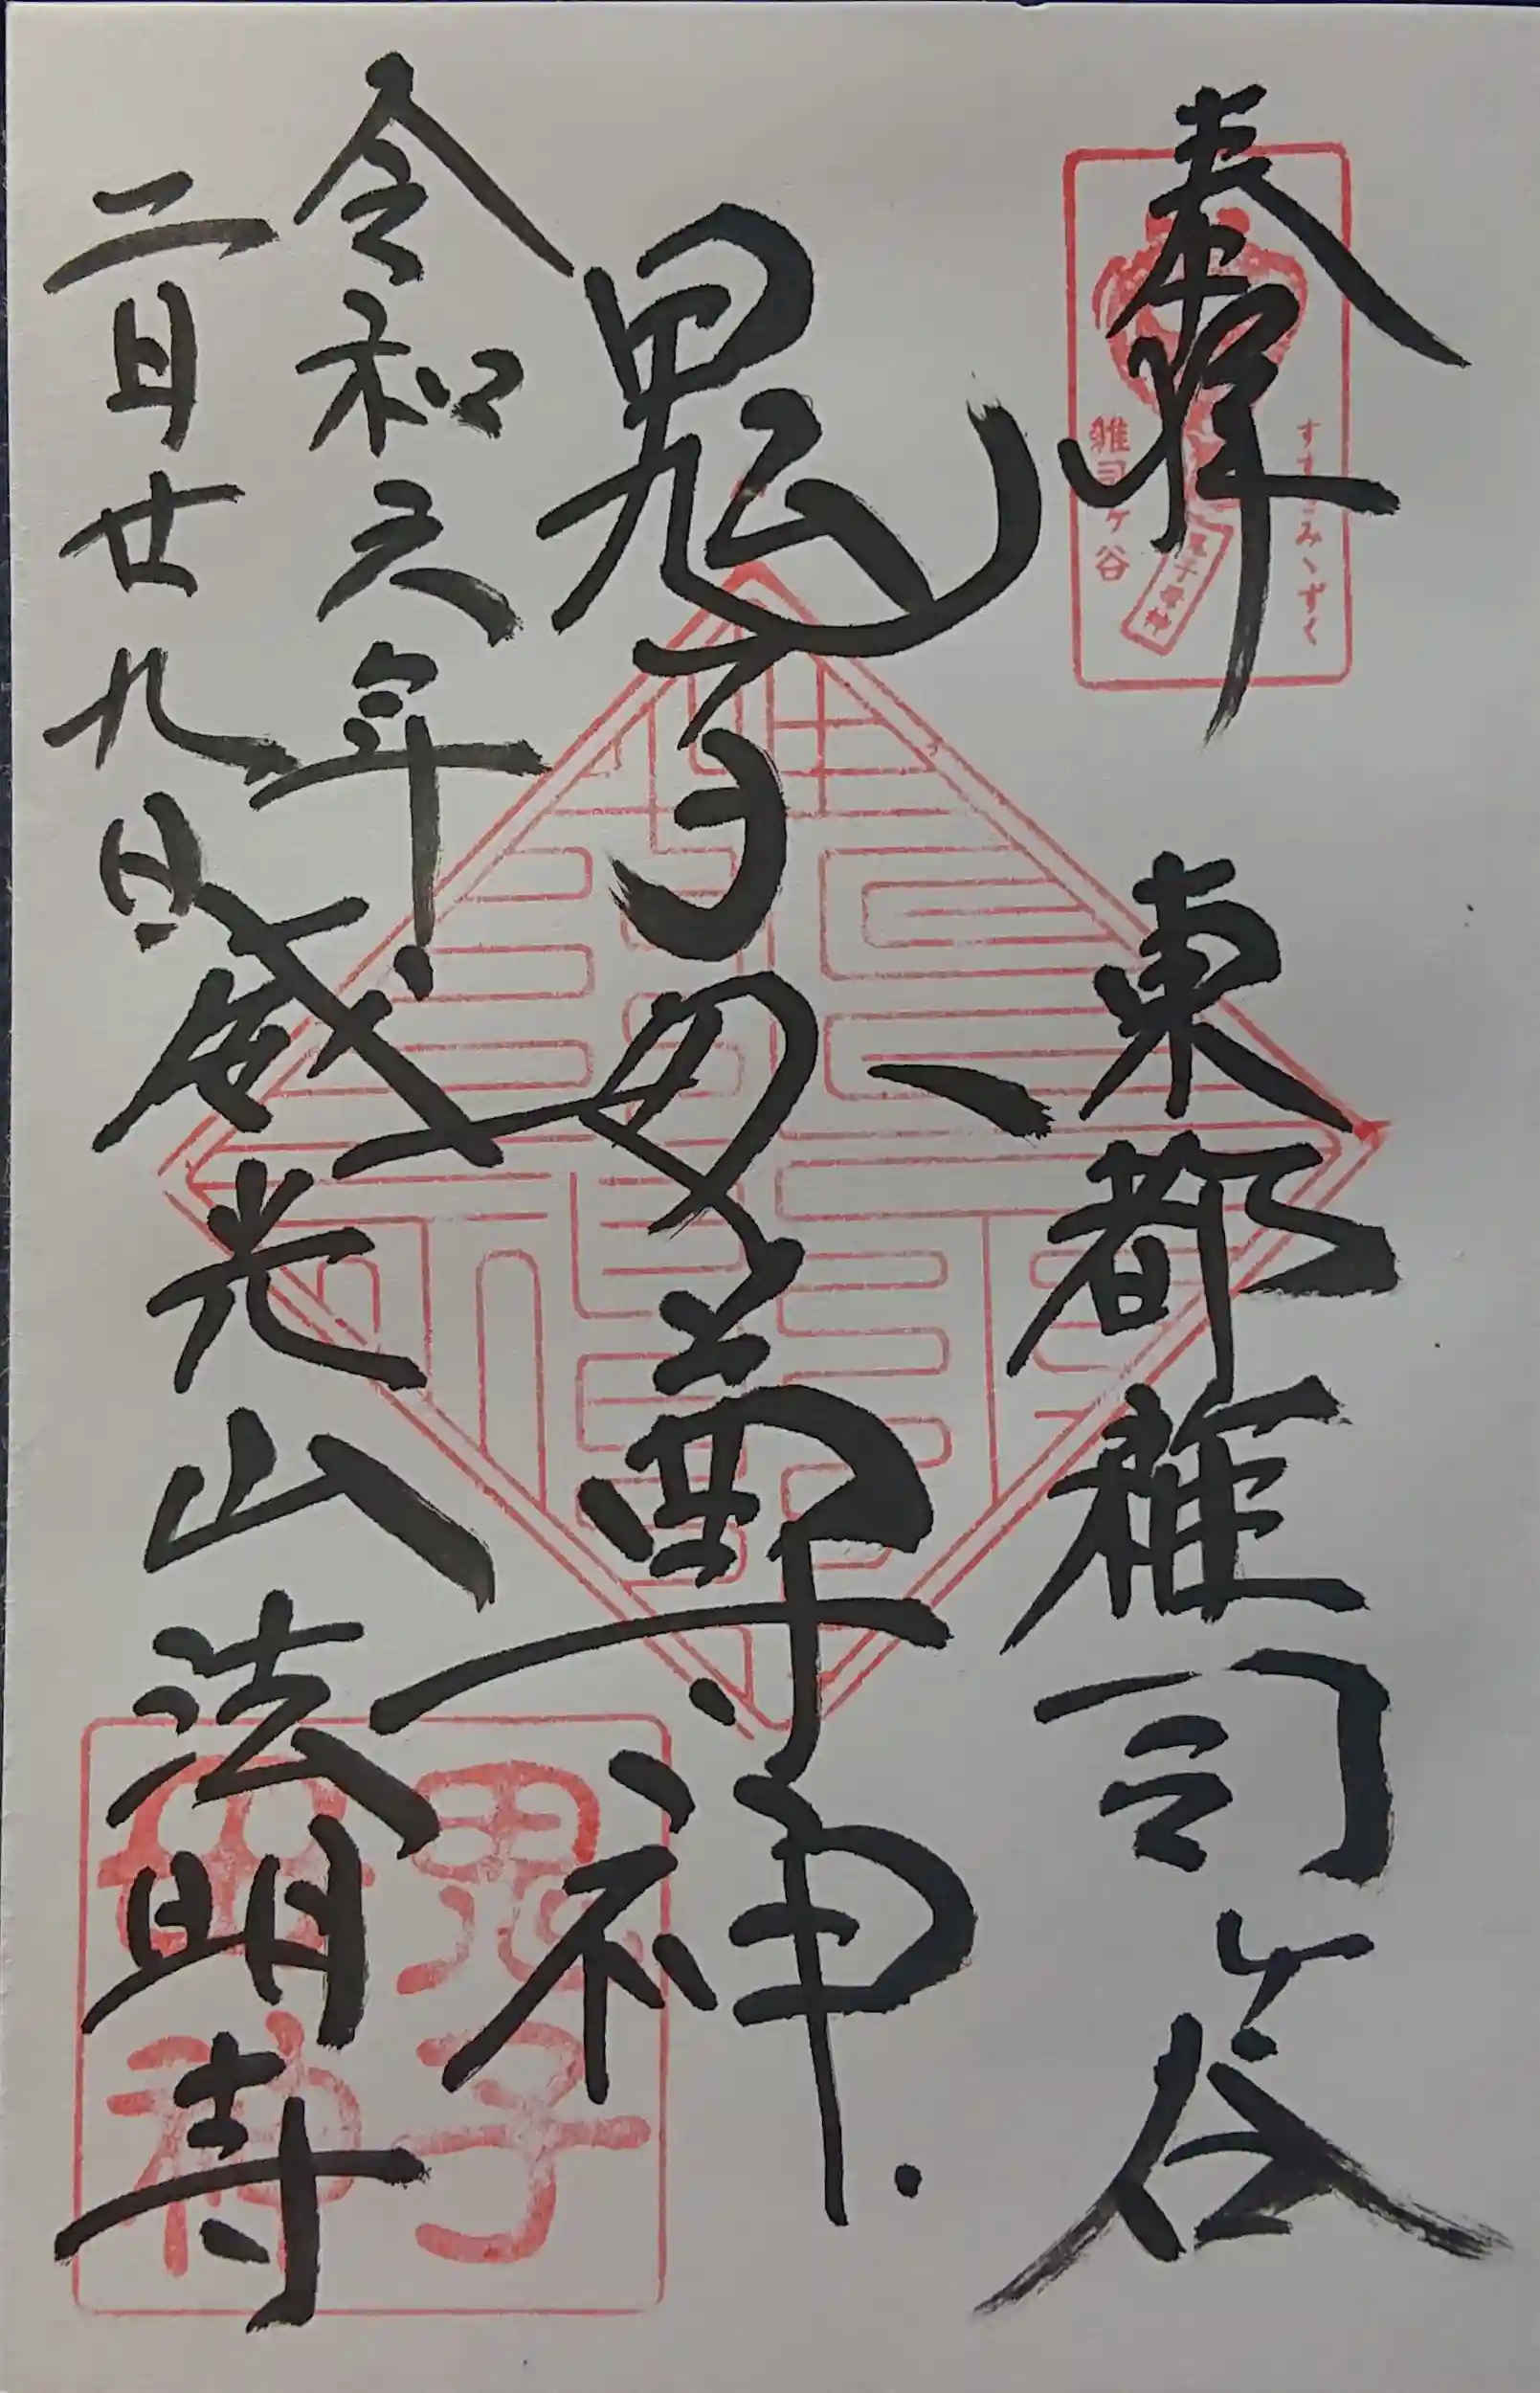 奉拝
東都雑司ヶ谷
すすきみゝずく
雑司ヶ谷
鬼子母神
鬼子母尊神
令和六年
二月廿九日
威光山法明寺
鬼子
母神